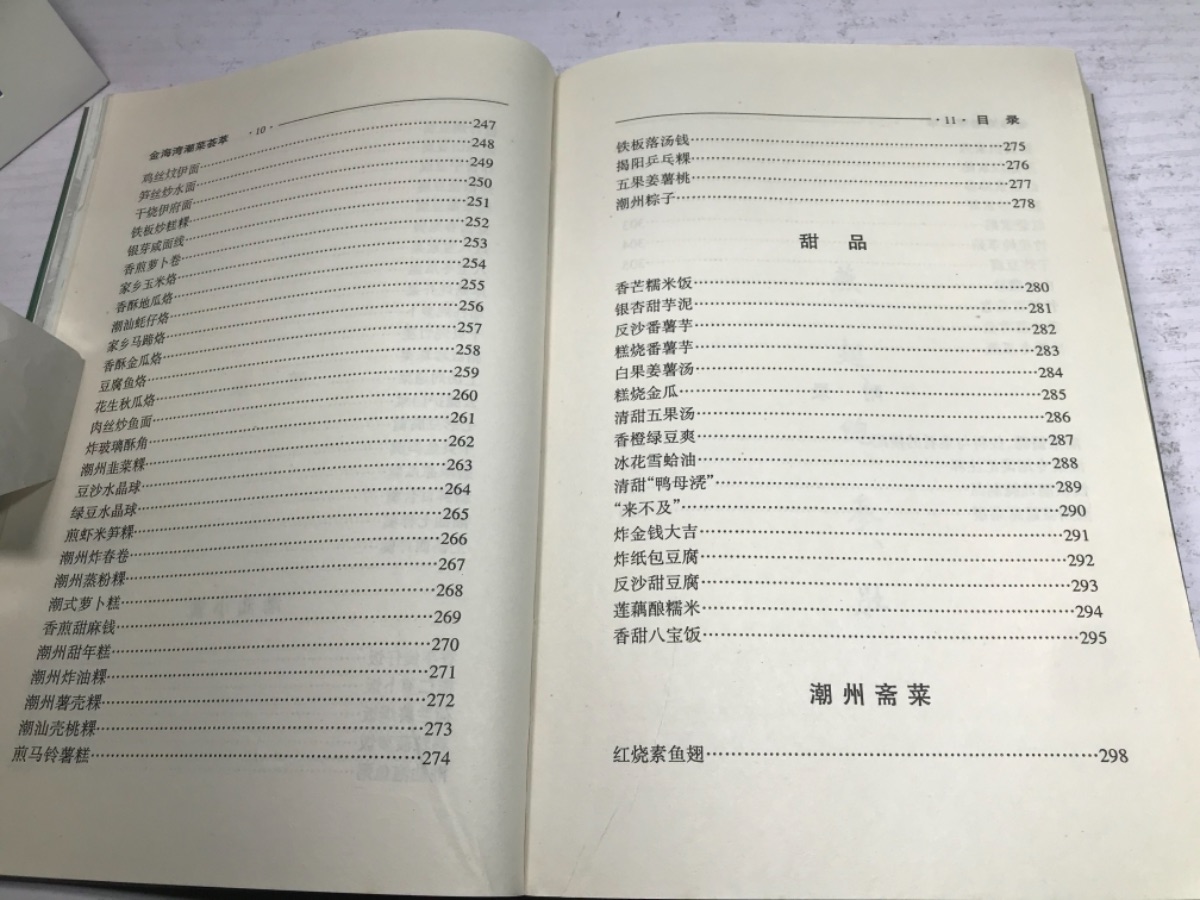 金海湾潮菜荟萃 ·10·
鸡丝炆伊面……247
笋丝炒水面……248
干烧伊府面……249
铁板炒糕粿……250
银芽咸面线……251
香煎萝卜卷……252
家乡玉米烙……253
香酥地瓜烙……254
潮汕蚝仔烙……255
家乡马蹄烙……256
香酥金瓜烙……257
豆腐鱼烙……258
花生秋瓜烙……259
肉丝炒鱼面……260
炸玻璃酥角……261
潮州韭菜粿……262
豆沙水晶球……263
绿豆水晶球……264
煎虾米笋粿……265
潮州炸春卷……266
潮州蒸粉粿……267
潮式萝卜糕……268
香煎甜麻钱……269
潮州甜年糕……270
潮州炸油粿……271
潮州薯壳粿……272
潮汕壳桃粿……273
煎马铃薯糕……274
·11· 目 录
铁板落汤钱……275
揭阳乒乓粿……276
五果姜薯桃……277
潮州粽子……278
甜 品
香芒糯米饭……280
银杏甜芋泥……281
反沙番薯芋……282
糕烧番薯芋……283
白果姜薯汤……284
糕烧金瓜……285
清甜五果汤……286
香橙绿豆爽……287
冰花雪蛤油……288
清甜“鸭母浸”……289
“来不及”……290
炸金钱大吉……291
炸纸包豆腐……292
反沙甜豆腐……293
莲藕酿糯米……294
香甜八宝饭……295
潮州斋菜
红烧素鱼翅……298